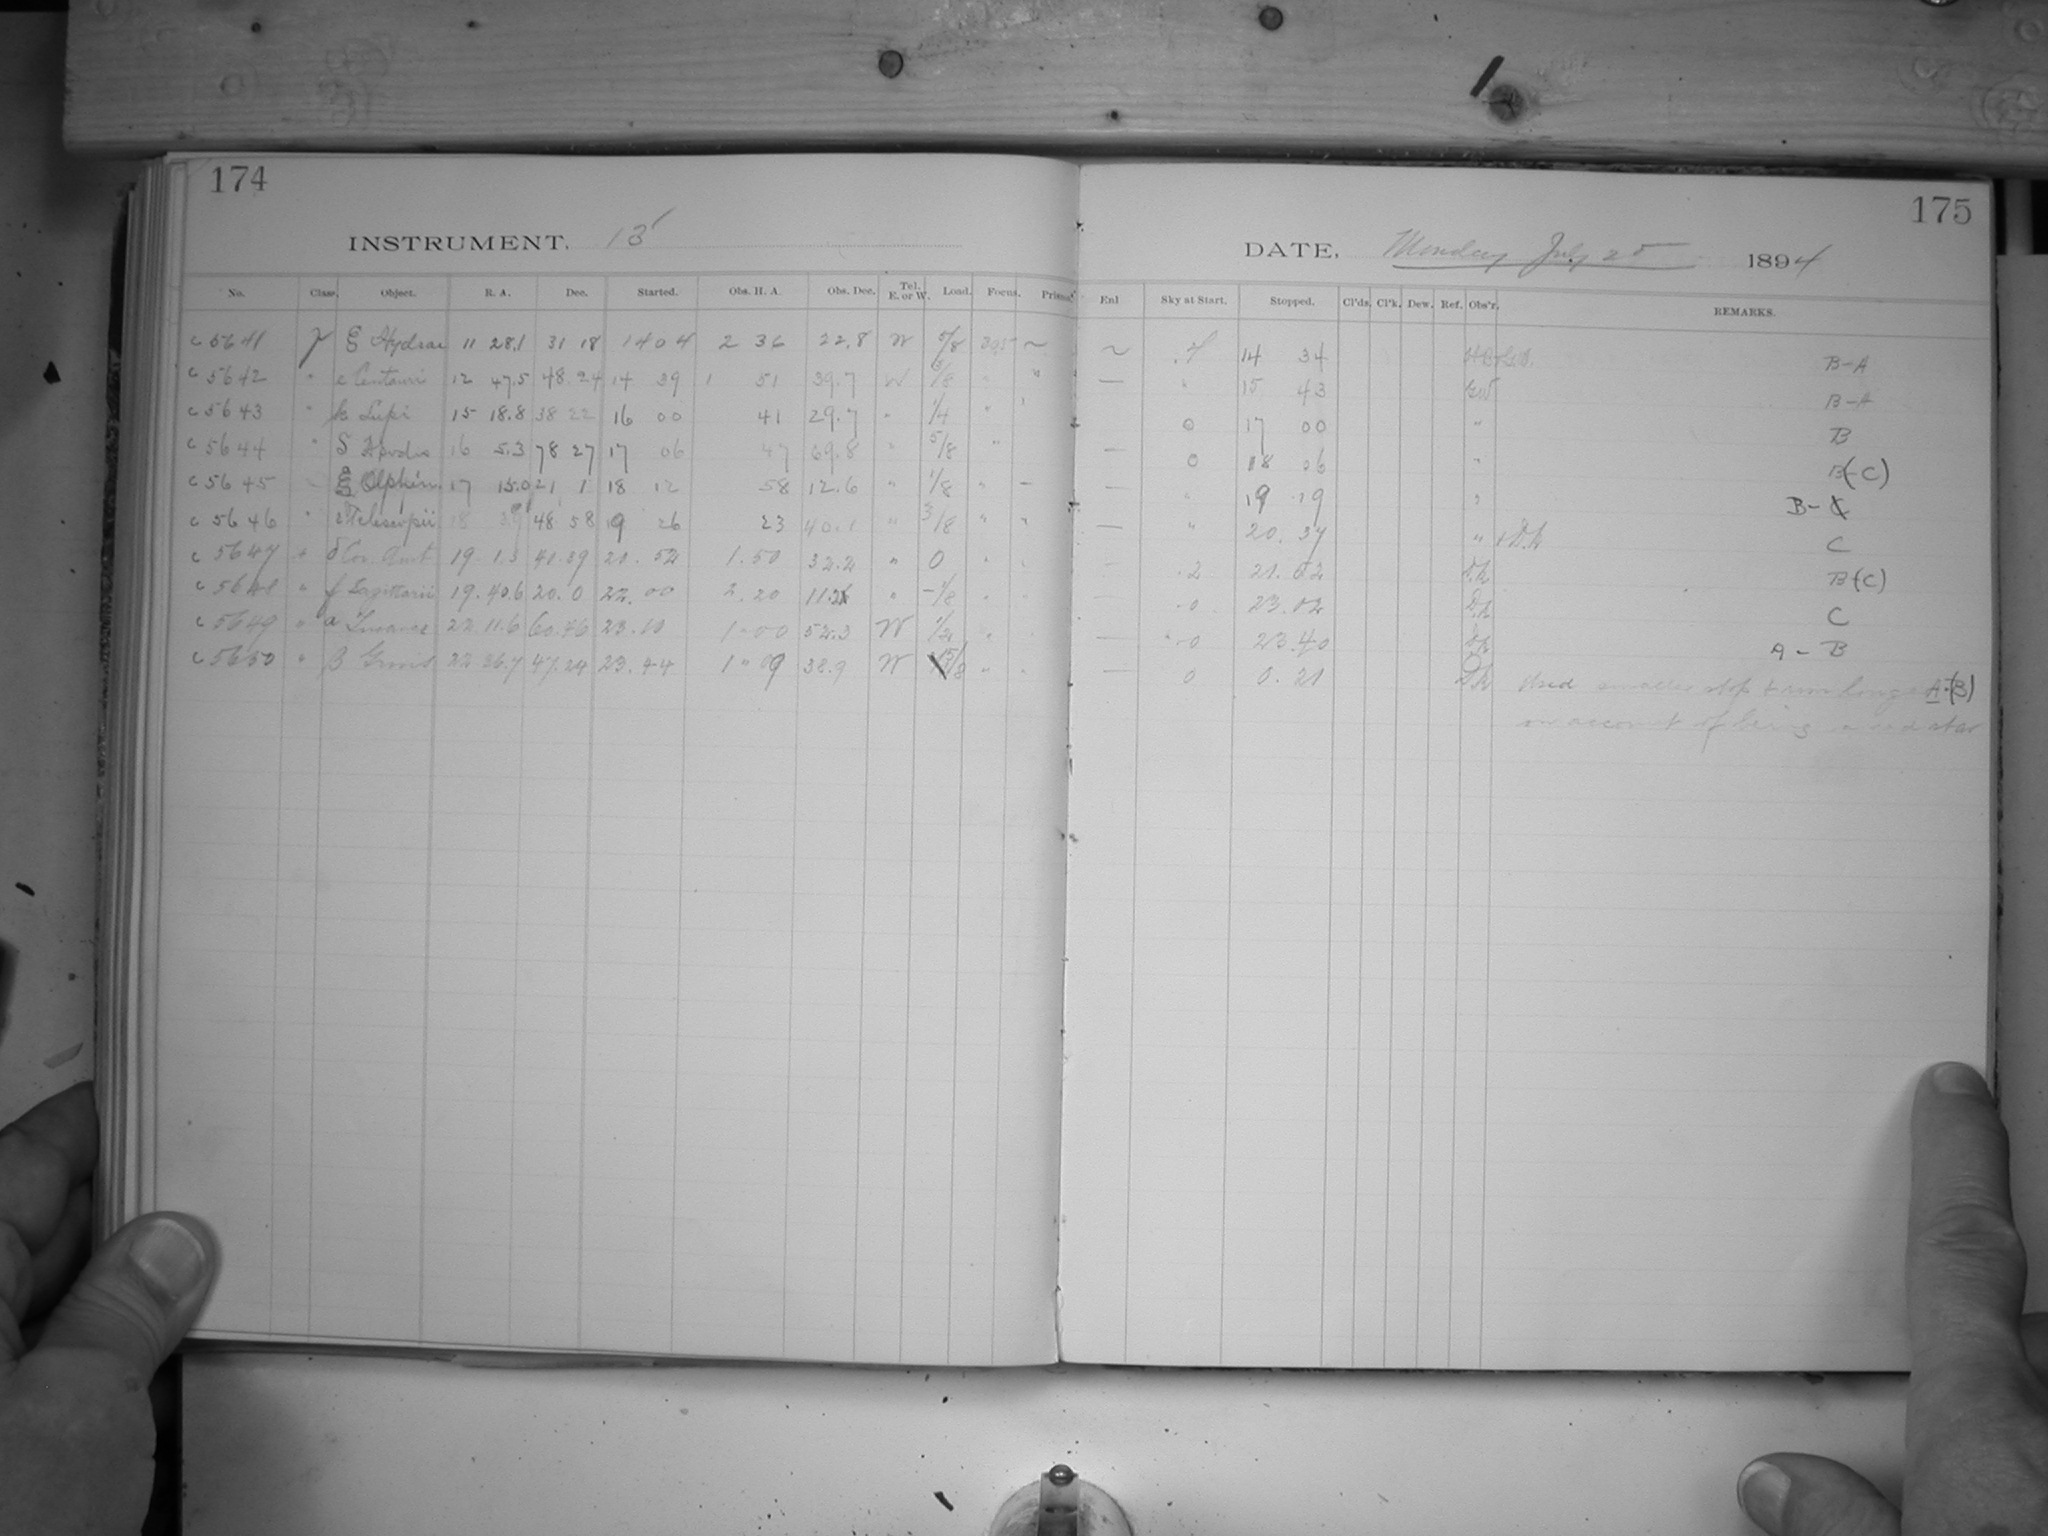 174
INSTRUMENT. 13"
No. Class. Object. R. A. Dec. Started. Obs. H. A. Obs. Dec. Tel. E. or W. Load. Focus. Prisms.
c 5641 ξ Hydrae 11 28.1 31 18 14 04 2 36 22.8 W 5/8
c 5642 " Centauri 12 47.5 48.24 14 39 1 51 39.7 W /8 "
c 5643 " k Lupi 15 18.8 38 22 16 00 41 29.7 " 1/4 "
c 5644 " δ Apodis 16 5.3 78 27 17 06 47 69.8 " 5/8 "
c 5645 ξ Olphin. 17 15.0 21 1 18 12 58 12.6 " 1/8 " –
c 5646 " Telescopii 18 48 58 19 26 23 40.1 " 3/8 " "
c 5647 δ Cor. Aust 19. 1.3 40.39 20. 52 1.50 32.2 " 0 "
c 5648 " f Sagittarii 19. 40.6 20. 0 22. 00 2. 20 " –1/8 "
c 5649 " α 22 11.6 60.46 23. 10 1"00 52.3 W 1/2 "
c 5650 " β Gruis 22 36.7 47.24 23. 44 1"09 38.9 W /8 "
175
DATE. Monday July 25 1894
Enl Sky at Start. Stopped. Cl'ds. Cl'k. Dew. Ref. Obs'r. REMARKS.
~ 14 34 B-A
— " 15 43 B-A
0 17 00 " B
— 0 18 06 " B(-C)
— " 19 19 " B-
— " 20. 37 " C
.2 21. 52 B(C)
0 23.02 C
— 0 23.40 A - B
— 0 0. 21 Used smaller stop A-(B)
on account of being a red star